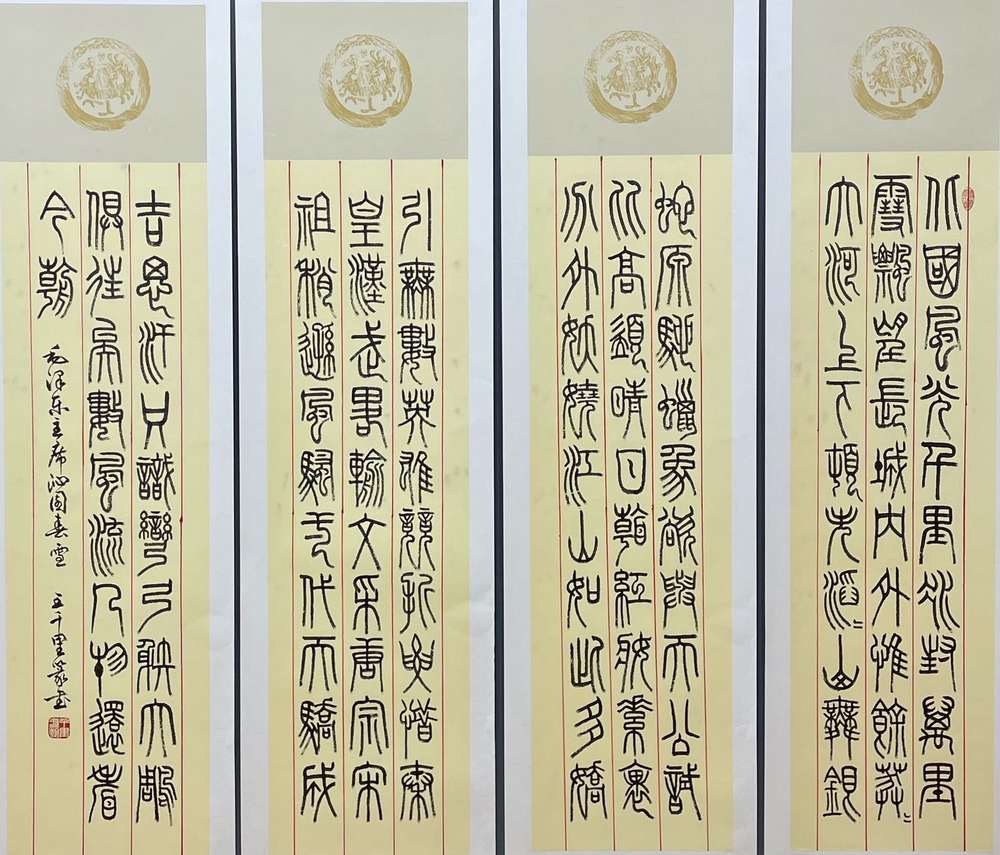 北國風光千里冰封萬里
雪飄望長城內外惟餘莽〻
大河上下頓失滔〻山舞銀
蛇原馳蠟象欲與天公試
比高須晴日看紅妝素裹
分外妖嬈江山如此多嬌
引無數英雄競折腰惜秦
皇漢武略輸文采唐宗宋
祖稍遜風騷一代天驕成
吉思汗只識彎弓射大雕
俱往矣數風流人物還看
今朝
毛泽东主席沁园春雪 王千里篆书